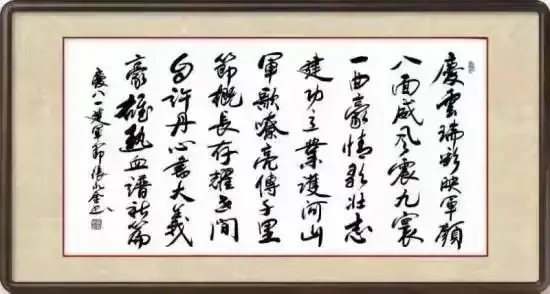 慶雲瑞彩映軍顏
八面威風震九寰
一曲豪情歌壯志
建功立業護河山
軍歌嘹亮傳千里
節概長存耀世間
自許丹心書大義
豪雄熱血譜新篇
慶八一建軍節